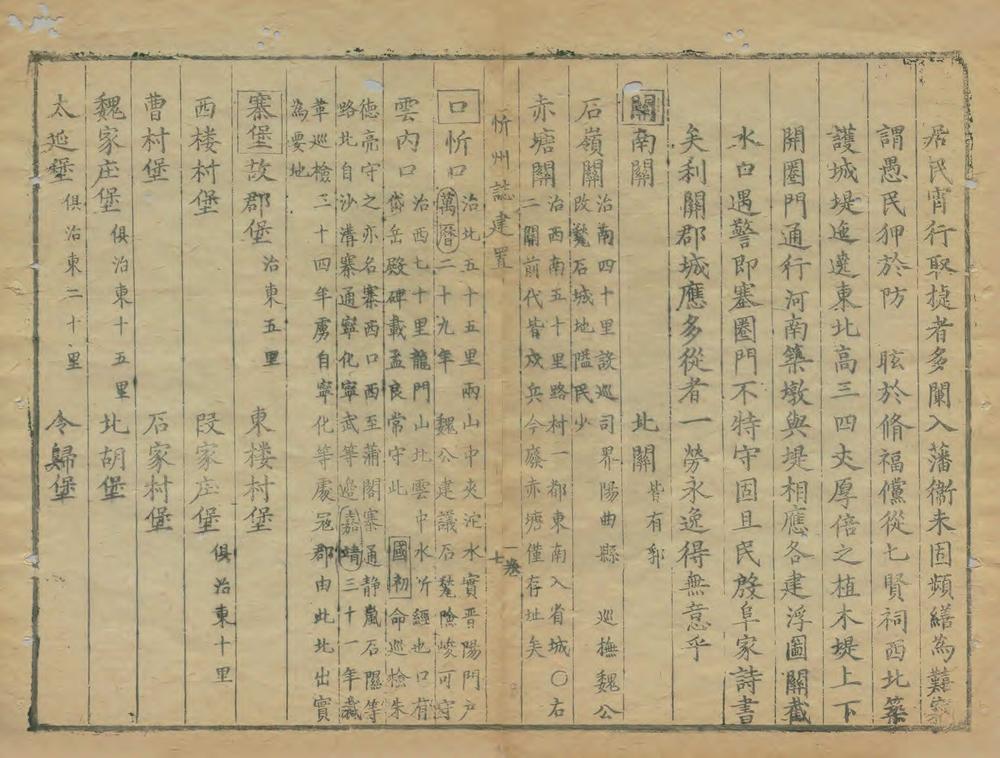 居民宵行取捷者多闌入藩衞未固頻繕為難
謂愚民狎於防 眩於脩福儻從七賢祠西北築
護城堤逶遶東北高三四丈厚倍之植木堤上下
開圈門通行河南築墩與堤相應各建浮圖關截
水口遇警即塞圈門不特守固且民殷阜家詩書
矣利關郡城應多從者一勞永逸得無意乎
關南關 北關皆有郭
石嶺關治南四十里設巡司界陽曲縣 巡撫魏公
改甃石城地隘民少
赤塘關治西南五十里路村一都東南入省城〇右
二關前代皆戍兵今廢赤塘僅存址矣
忻州誌建置 一卷 七
口忻口治北五十五里兩山中夾沱水實晉陽門户
萬曆二十九年 魏公建議石甃險峻可守
雲内口治西七十里龍門山北雲中水所經也口有
岱岳殿碑載孟良常守此 國初命巡檢朱
德亮守之亦名寨西口西至蒲閣寨通静嵐石隰等
路北自沙溝寨通寧化寧武等邊嘉靖三十一年裁
革巡檢三十四年虜自寧化等處冦郡由此北出實
為要地
寨堡故郡堡治東五里 東楼村堡
西楼村堡 叚家庄堡俱治東十里
曹村堡 石家村堡
魏家庄堡俱治東十五里 北胡堡
太延堡俱治東二十里 令歸堡